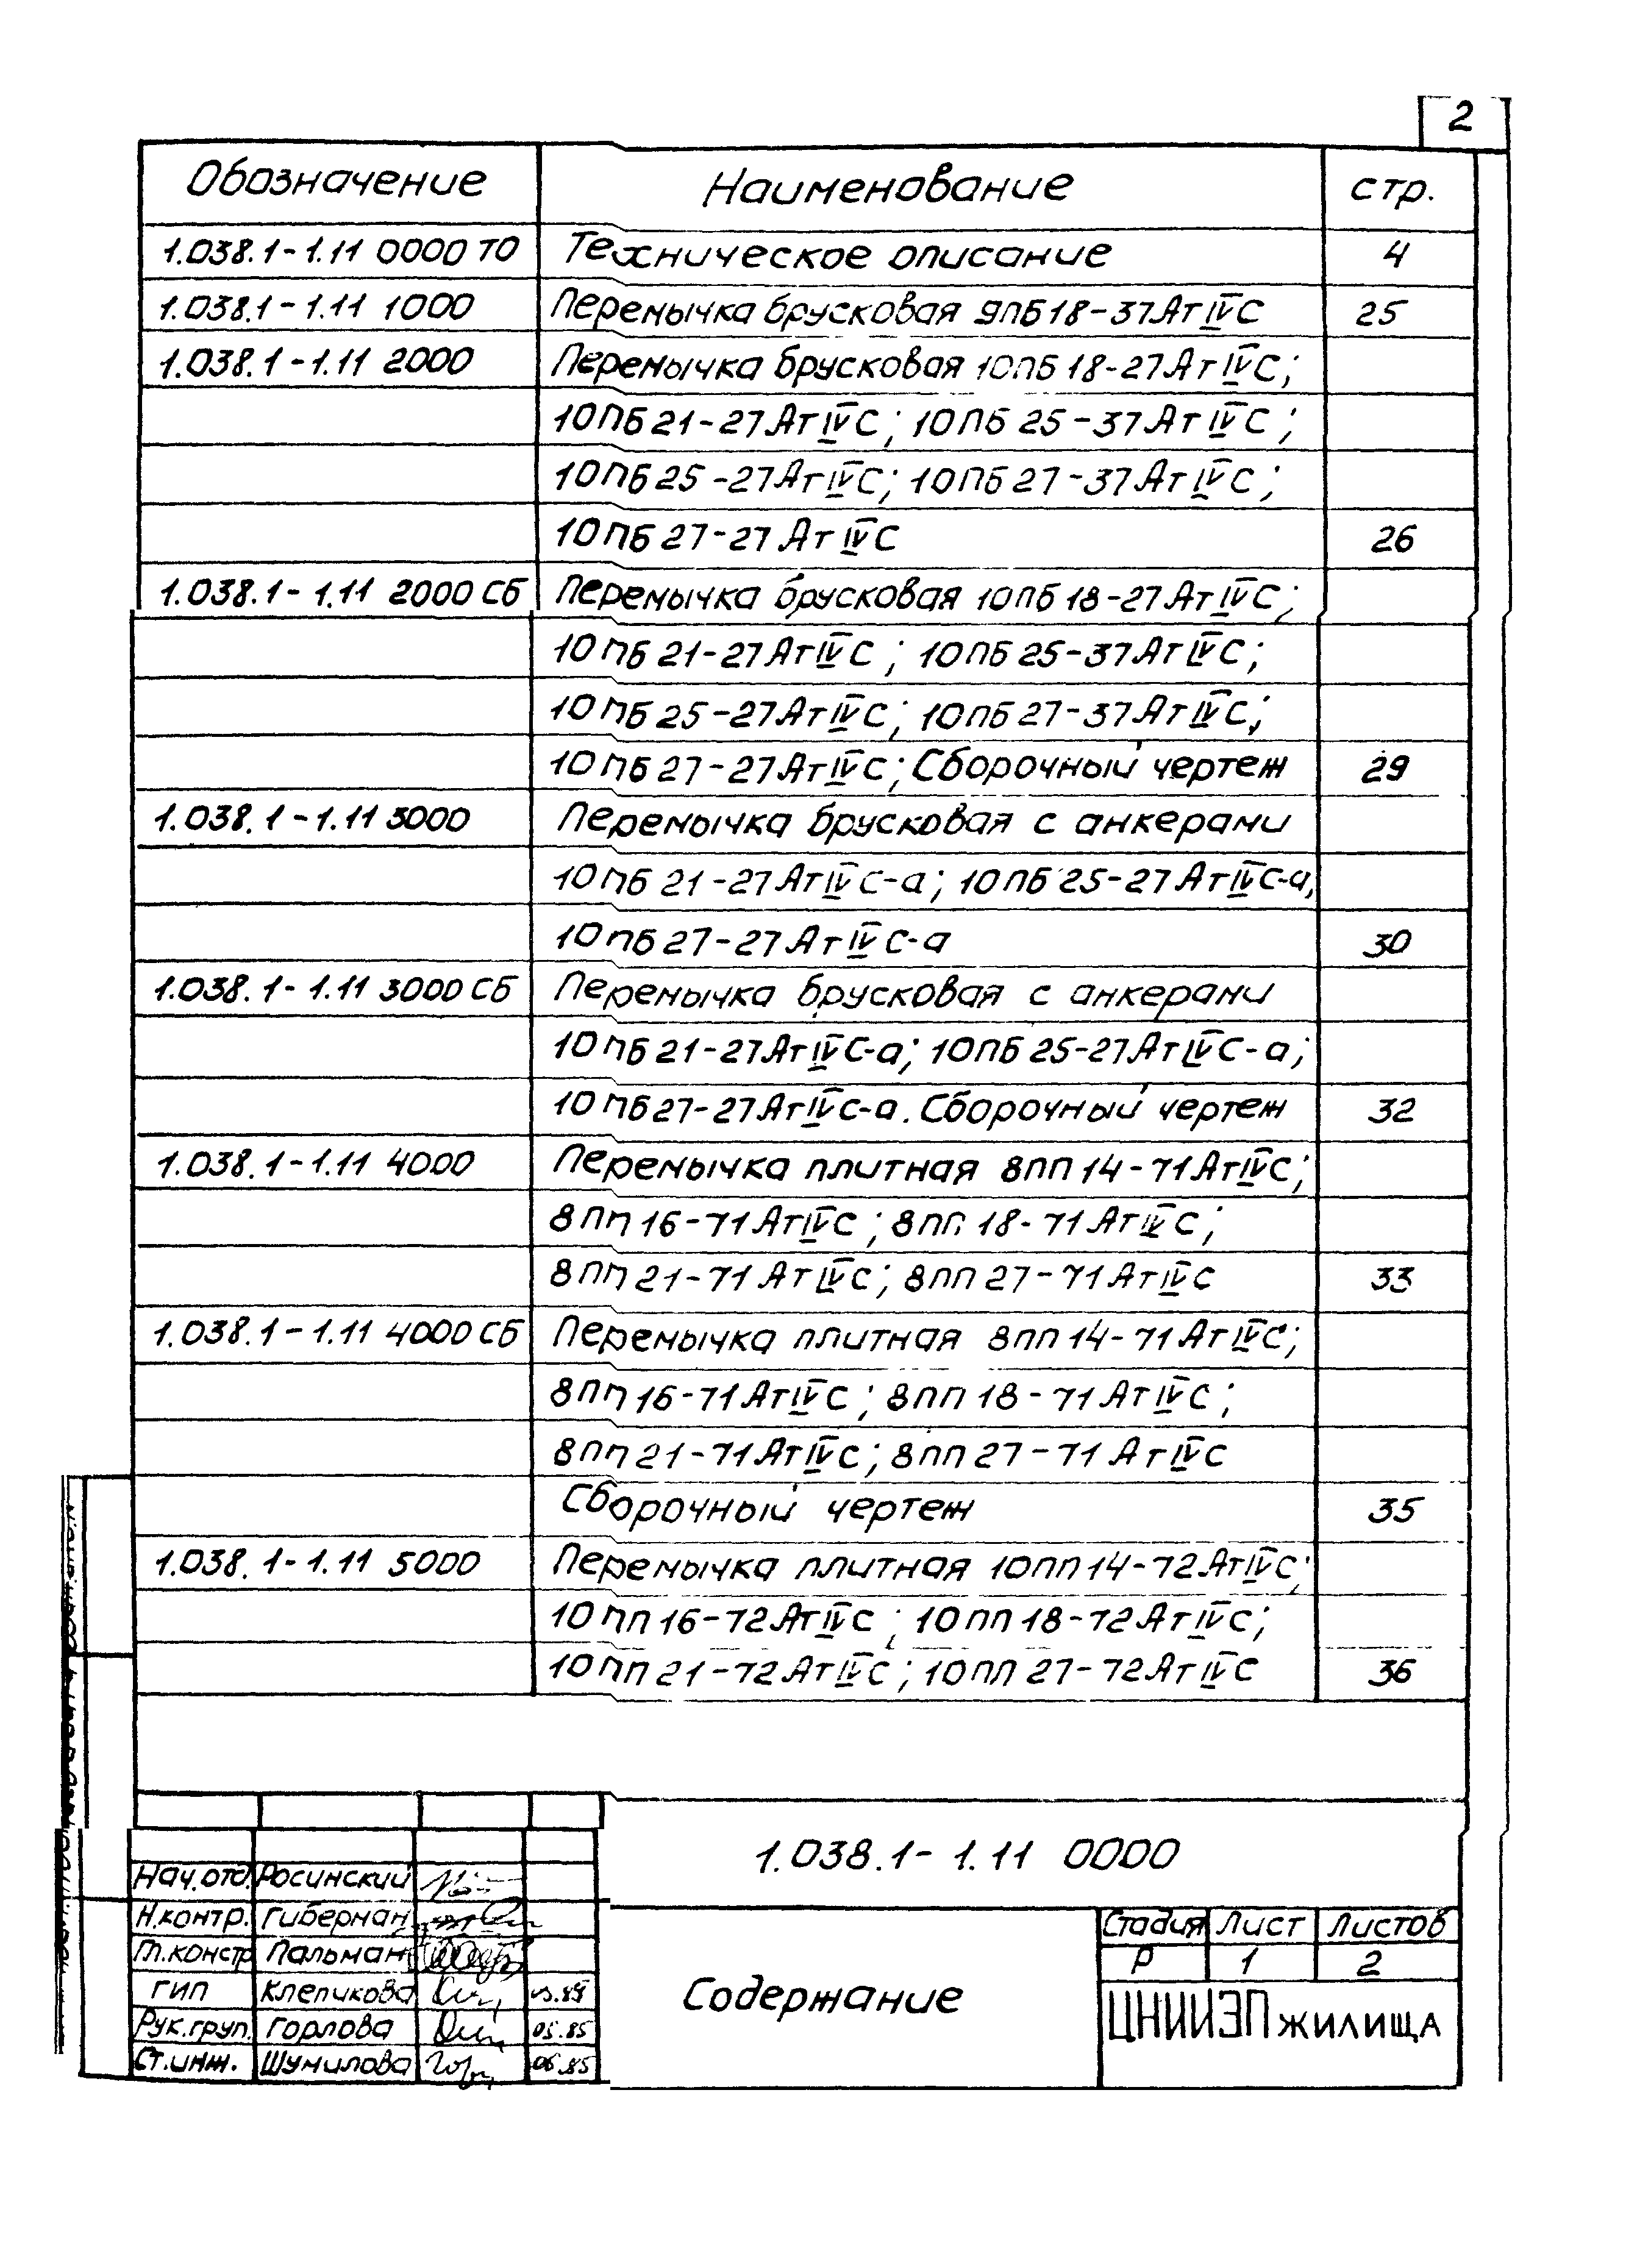 2
Обозначение Наименование стр.
1.038.1-1.11 0000 ТО Техническое описание 4
1.038.1-1.11 1000 Перемычка брусковая 9ПБ18-37АтIVС 25
1.038.1-1.11 2000 Перемычка брусковая 10ПБ18-27АтIVС;
10ПБ21-27АтIVС; 10ПБ25-37АтIVС;
10ПБ25-27АтIVС; 10ПБ27-37АтIVС;
10ПБ27-27АтIVС 26
1.038.1-1.11 2000 СБ Перемычка брусковая 10ПБ18-27АтIVС;
10ПБ21-27АтIVС; 10ПБ25-37АтIVС;
10ПБ25-27АтIVС; 10ПБ27-37АтIVС;
10ПБ27-27АтIVС; Сборочный чертеж 29
1.038.1-1.11 3000 Перемычка брусковая с анкерами
10ПБ21-27АтIVС-а; 10ПБ25-27АтIVС-а;
10ПБ27-27АтIVС-а 30
1.038.1-1.11 3000 СБ Перемычка брусковая с анкерами
10ПБ21-27АтIVС-а; 10ПБ25-27АтIVС-а;
10ПБ27-27АтIVС-а. Сборочный чертеж 32
1.038.1-1.11 4000 Перемычка плитная 8ПП14-71АтIVС;
8ПП16-71АтIVС; 8ПП18-71АтIVС;
8ПП21-71АтIVС; 8ПП27-71АтIVС 33
1.038.1-1.11 4000 СБ Перемычка плитная 8ПП14-71АтIVС;
8ПП16-71АтIVС; 8ПП18-71АтIVС;
8ПП21-71АтIVС; 8ПП27-71АтIVС
Сборочный чертеж 35
1.038.1-1.11 5000 Перемычка плитная 10ПП14-72АтIVС;
10ПП16-72АтIVС; 10ПП18-72АтIVС;
10ПП21-72АтIVС; 10ПП27-72АтIVС 36
1.038.1-1.11 0000
Нач.отд. Росинский
Н.контр. Гиберман
Гл.констр Пальман
ГИП Клепикова
Рук.груп. Горлова 05.85
Ст.инж. Шумилова 06.85
Содержание
Стадия Лист Листов
Р 1 2
ЦНИИЭП жилища